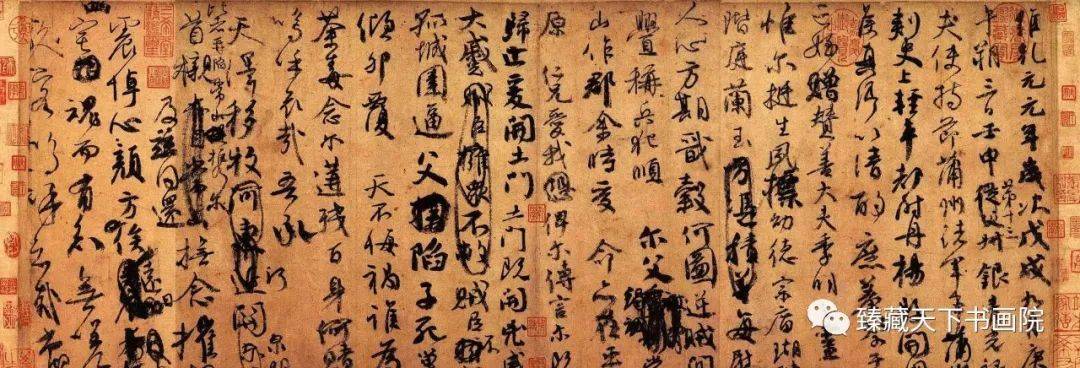 維乾元元年歲次戊戌九月庚
午朔三日壬申第十三從父叔銀青光祿
夫使持節蒲州諸軍事蒲州
刺史上輕車都尉丹楊縣開國
侯真卿以清酌庶羞祭于
亡姪贈贊善大夫季明之靈
惟爾挺生夙標幼德宗廟瑚
階庭蘭玉方憑積善每慰
人心方期戩穀何圖逆賊閒
釁稱兵犯順爾父常
山作郡余時受命亦在平
原仁兄愛我恐俾爾傳言爾既
歸止爰開土門土門既開凶威
大蹙賊臣擁眾不救賊臣不
孤城圍逼父擒陷子死巢
傾卵覆天不悔禍誰為
荼毒念爾遘殘百身何贖
嗚乎哀哉吾承
天澤移牧河東近河關泉明
比者再陷常山攜爾
首櫬亦自常山撫念摧
及茲同還
震悼心顏方俟遠日
宅魂而有知無嗟
久客嗚呼哀哉尚
臻藏天下书画院